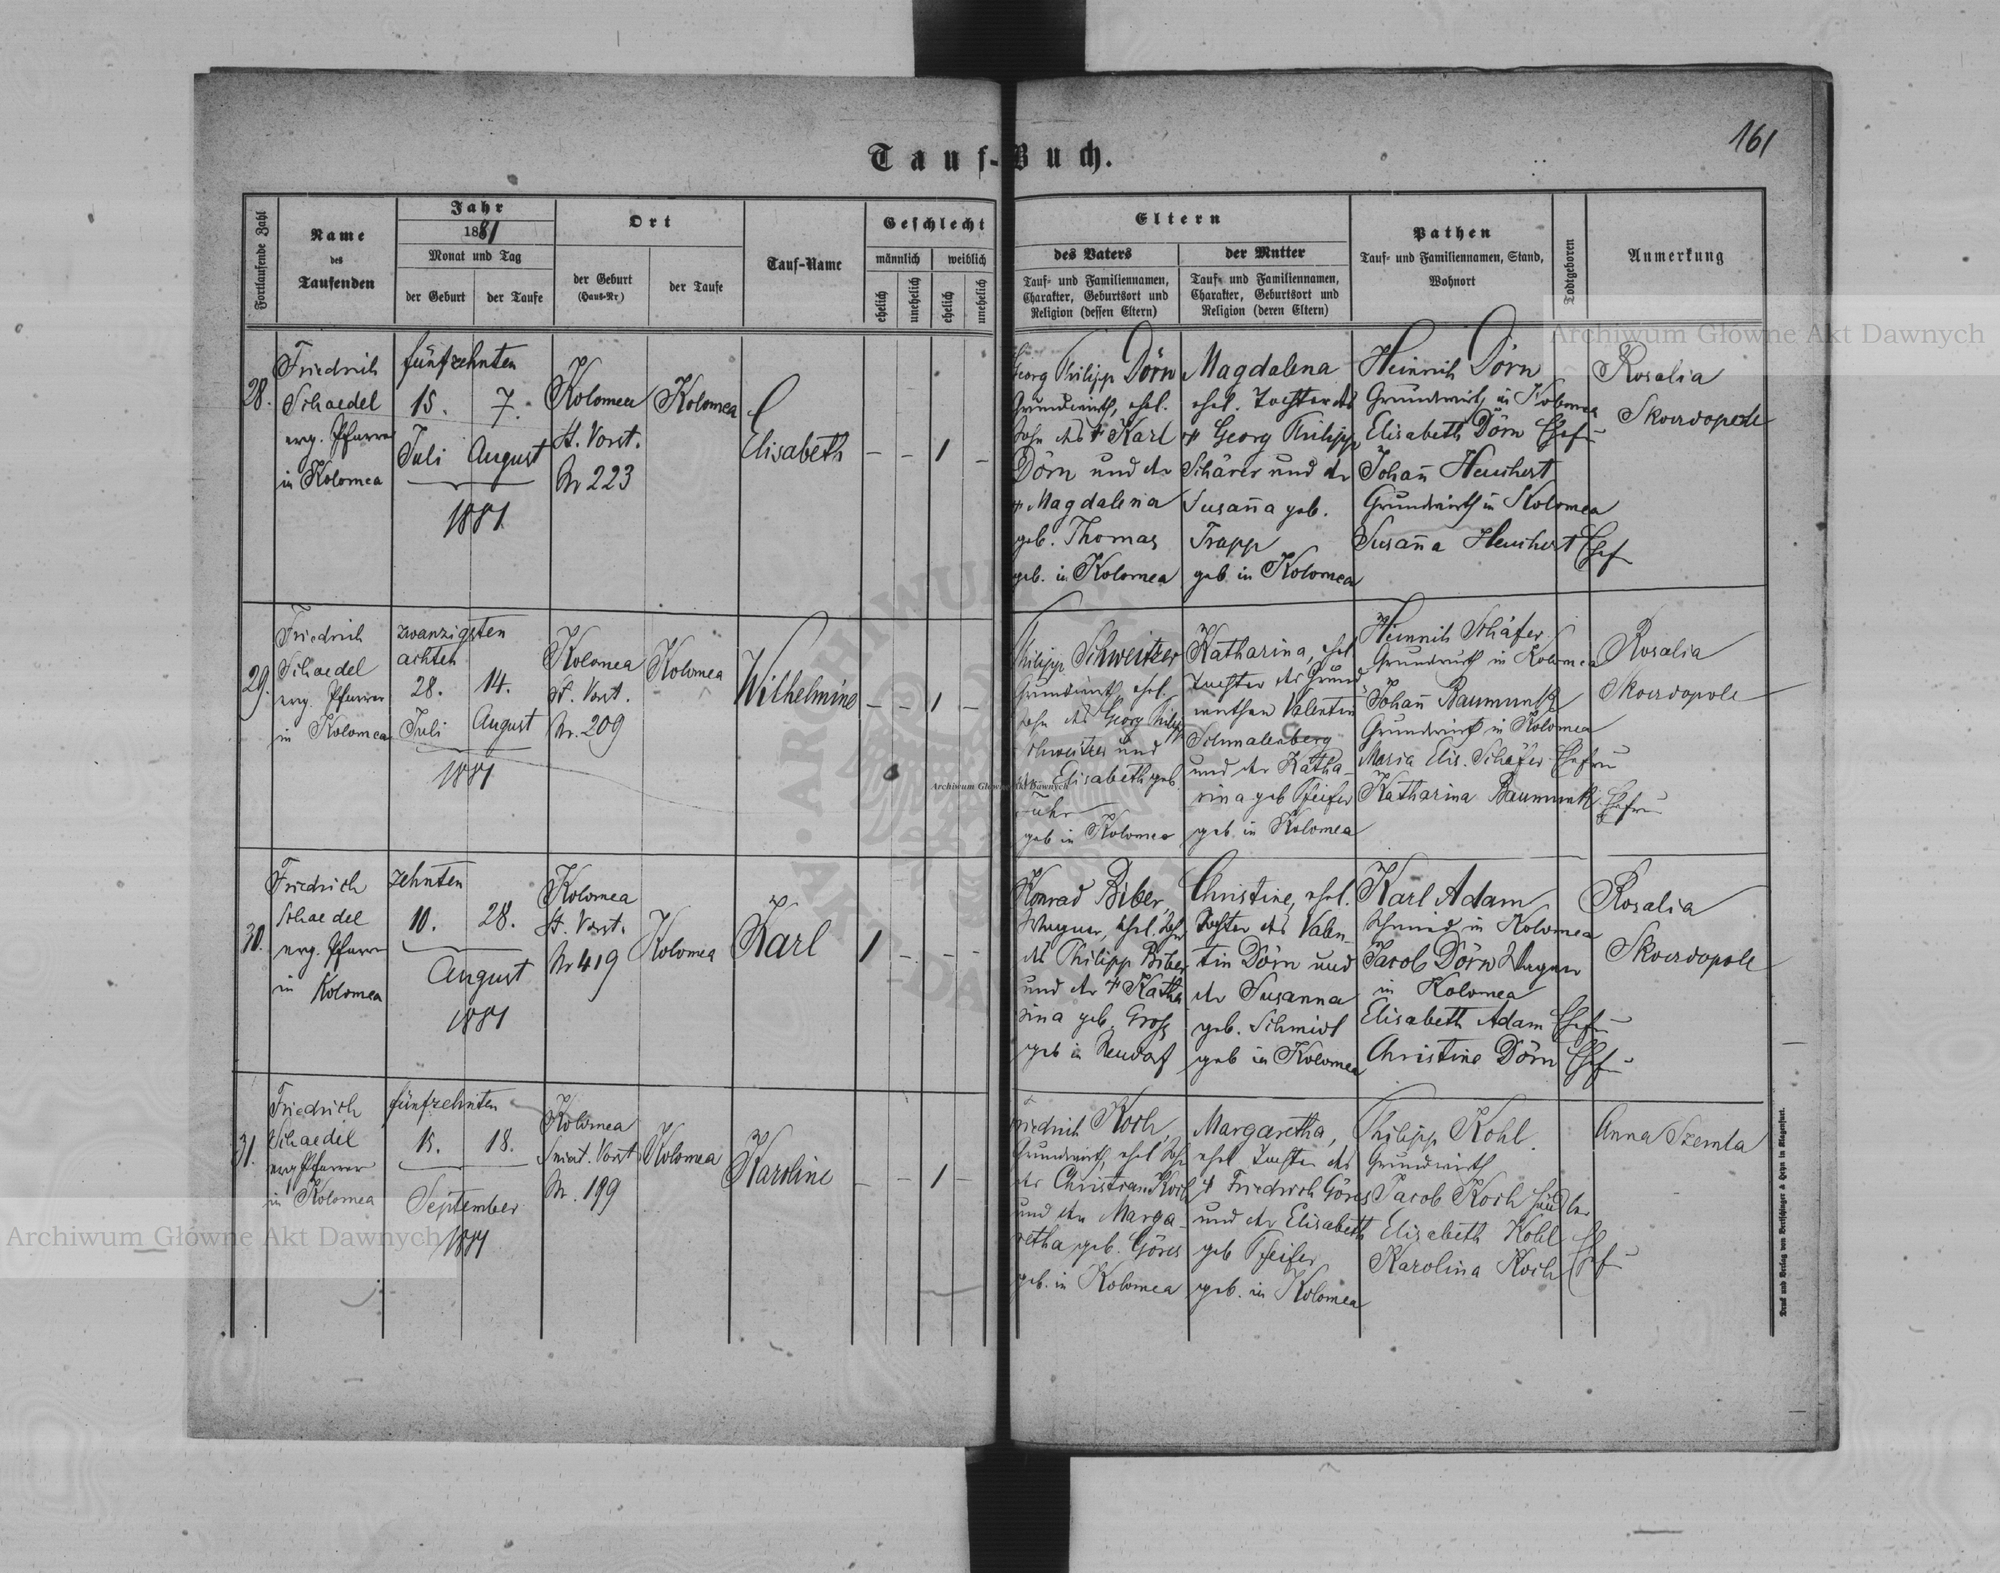 161
Tauf-Buch.
Fortlaufende Zahl
Name
des
Taufenden
Jahr
1881
Monat und Tag
der Geburt
der Taufe
Ort
der Geburt
(Haus-Nr)
der Taufe
Tauf-Name
Geschlecht
männlich
weiblich
ehelich
unehelich
ehelich
unehelich
Eltern
des Vaters
Tauf- und Familiennamen,
Charakter, Geburtsort und
Religion (dessen Eltern)
der Mutter
Tauf- und Familiennamen,
Charakter, Geburtsort und
Religion (deren Eltern)
Pathen
Tauf- und Familiennamen, Stand,
Wohnort
Todtgeboren
Anmerkung
28.
Friedrich
Schaedel
evg. Pfarrer
in Kolomea
fünfzehnten
15. 7.
Juli August
1881
Kolomea
St. Vorst.
Nr 223
Kolomea
Elisabeth
– – 1 –
Georg Philipp Dörn
Grundwirth, ehel.
Sohn des † Karl
Dörn und der
† Magdalena
geb. Thomas
geb. in Kolomea
Magdalena
ehel. Tochter des
† Georg Philipp
Schärer und der
Susana geb.
Trapp
geb. in Kolomea
Heinrich Dörn
Grundwirth in Kolomea
Elisabeth Dörn Ehef
Johan Heuchert
Grundwirth in Kolomea
Susana Heuchert Ehef
Rosalia
Skowdopole
29.
Friedrich
Schaedel
evg. Pfarrer
in Kolomea
zwanzigsten
achten
28. 14.
Juli August
1881
Kolomea
St. Vorst.
Nr. 209
Kolomea
Wilhelmine
– – 1 –
Philipp Schweitzer
Grundwirth, ehel.
Sohn des Georg Philipp
Schweitzer und
der Elisabeth geb.
Fuhr
geb in Kolomea
Katharina, ehel
Tochter des Grund
wirthen Valentin
Schmalenberg
und der Katha
rina geb Pfeifer
geb. in Kolomea
Heinrich Schäfer
Grundwirth in Kolomea
Johan Baumunk
Grundwirth in Kolomea
Maria Elis. Schäfer Ehefru
Katharina Baumunk Ehefru
Rosalia
Skowdopole
30.
Friedrich
Schaedel
evg. Pfarrer
in Kolomea
zehnten
10. 28.
August
1881
Kolomea
St. Vorst.
Nr 419
Kolomea
Karl
1 – – –
Konrad Biber,
Wagner, ehel. Sohn
des Philipp Biber
und der † Katha
rina geb. Groß
geb in Neudorf
Christine, ehel.
Tochter des Valen
tin Dörn und
der Susanna
geb. Schmidt
geb in Kolomea
Karl Adam
Schmied in Kolomea
Jacob Dörn Wagner
in Kolomea
Elisabeth Adam Ehef
Christine Dörn Ehef
Rosalia
Skowdopole
31.
Friedrich
Schaedel
evg Pfarrer
in Kolomea
fünfzehnten
15. 18.
September
1881
Kolomea
Sniat. Vorst
Nr. 199
Kolomea
Karoline
– – 1 –
Friedrich Koch,
Grundwirth, ehel Sohn
des Christian Koch
und der Marga
retha geb. Göres
geb. in Kolomea
Margaretha,
ehel Tochter des
† Friedrich Göres
und der Elisabeth
geb Pfeifer
geb. in Kolomea
Philipp Kohl
Grundwirth
Jacob Koch
Elisabeth Kohl
Karolina Koch Ehef
Anna Szemla
Druck und Verlag von Bertschinger & Heyn in Klagenfurt.
Archiwum Główne Akt Dawnych
Archiwum Główne Akt Dawnych
Archiwum Główne Akt Dawnych